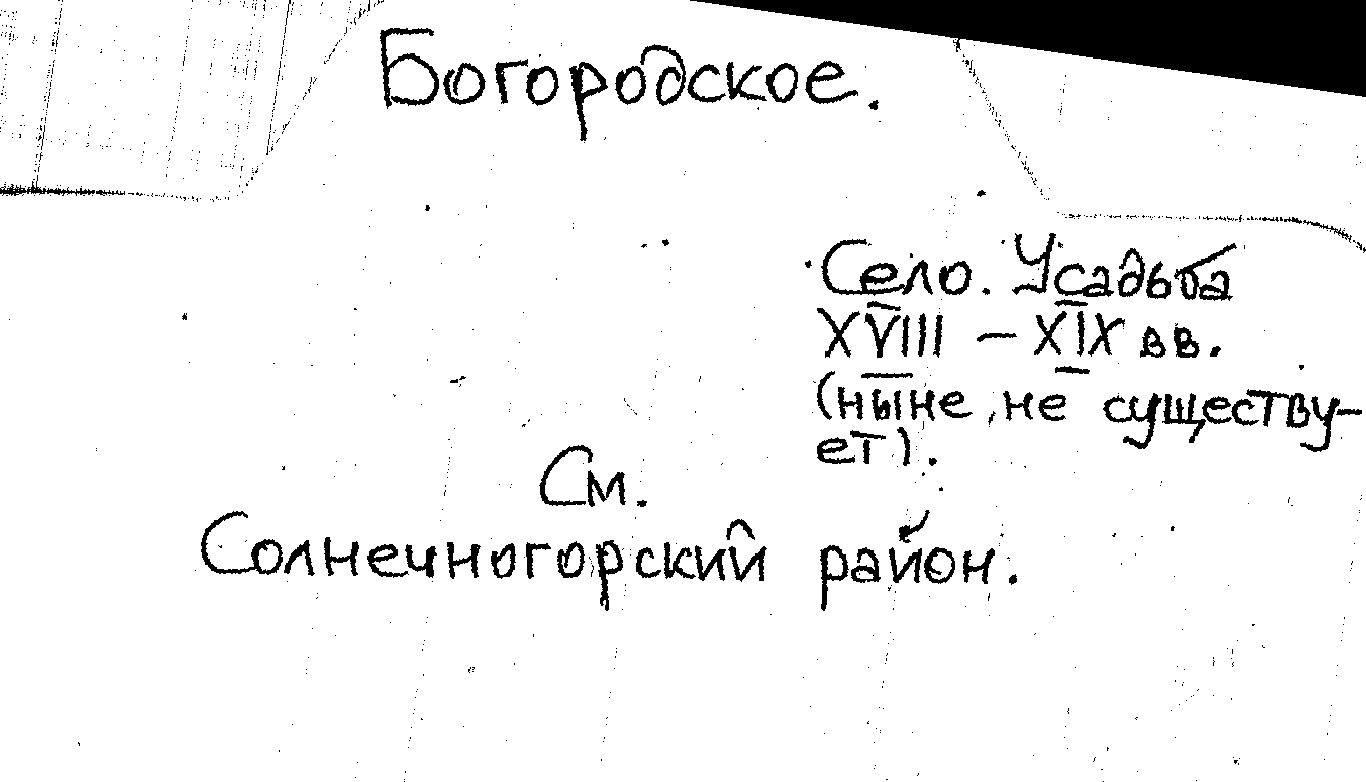 Богородское.
Село. Усадьба
XVIII – XIX вв.
(ныне не существу-
ет).
См.
Солнечногорский район.